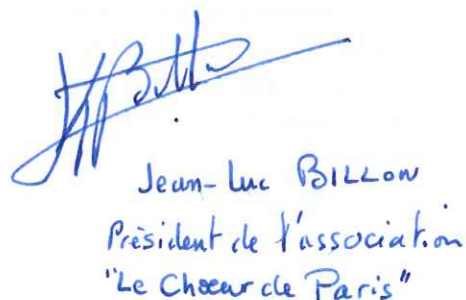 Jean-Luc BILLON
Président de l'association
"Le Chœur de Paris"